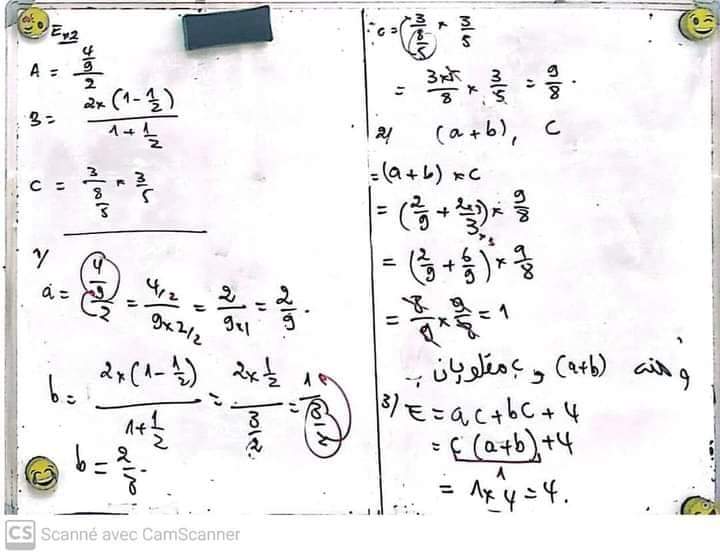 Ex2
A = \frac{\frac{4}{9}}{2}
B = \frac{2×(1-\frac{1}{2})}{1+\frac{1}{2}}
C = \frac{3}{\frac{8}{5}} × \frac{3}{5}
1/
a = \frac{\frac{4}{9}}{2} = \frac{4/2}{9×2/2} = \frac{2}{9×1} = \frac{2}{9}.
b = \frac{2×(1-\frac{1}{2})}{1+\frac{1}{2}} = \frac{2×\frac{1}{2}}{\frac{3}{2}} = \frac{1}{\frac{3}{2}}
b = \frac{2}{3}.
c = \frac{3}{\frac{8}{5}} × \frac{3}{5}
= \frac{3×5}{8} × \frac{3}{5} = \frac{9}{8}.
2/ (a+b), C
= (a+b) × C
= (\frac{2}{9} + \frac{2×3}{3×3}) × \frac{9}{8}
= (\frac{2}{9} + \frac{6}{9}) × \frac{9}{8}
= \frac{8}{9} × \frac{9}{8} = 1
ومنه (a+b) و c مقلوبان
3/ E = ac+bc+4
= c(a+b)+4
1
= 1×4=4.
CS Scanné avec CamScanner